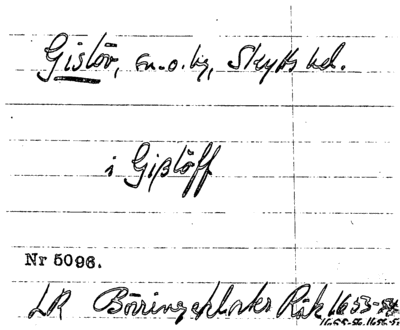 Gislöv, sn. o. by, Skytts hd.
i Gißlöff
Nr 5096.
LR Börringekloster Räk 1653-54
1655-56, 1656-57